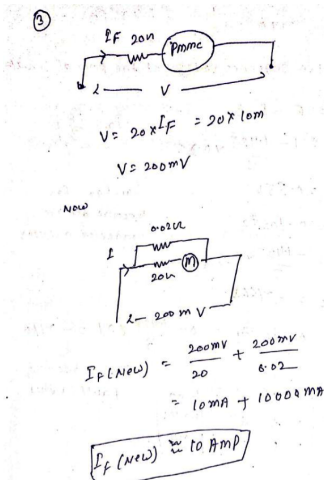 ③
IF 20Ω PMMC
V
V = 20 × IF = 20 × 10m
V = 200mV
Now
0.02Ω
I
20Ω M
200 m V
IF(New) = 200mV/20 + 200mV/0.02
= 10mA + 10000 mA
IF (New) ≈ 10 Amp